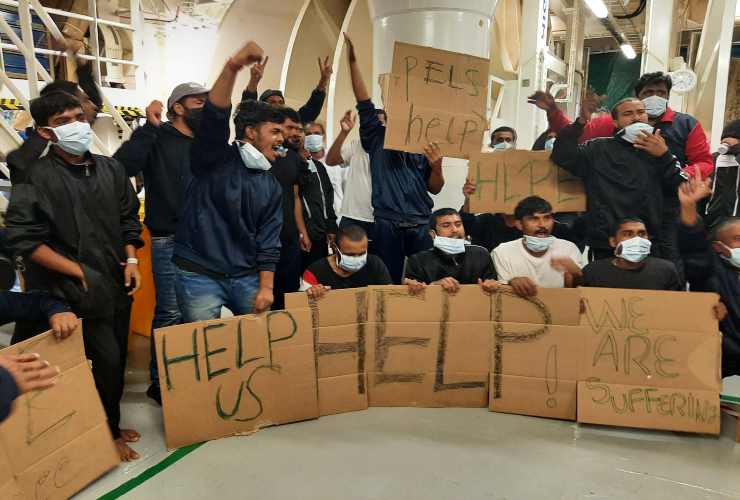 PELS
help
HLPE
HELP
US
HELP!
WE
ARE
SUFFERING